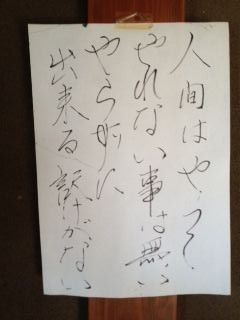 人間はやって
やれない事は無い
やらずに
出来る訳がない